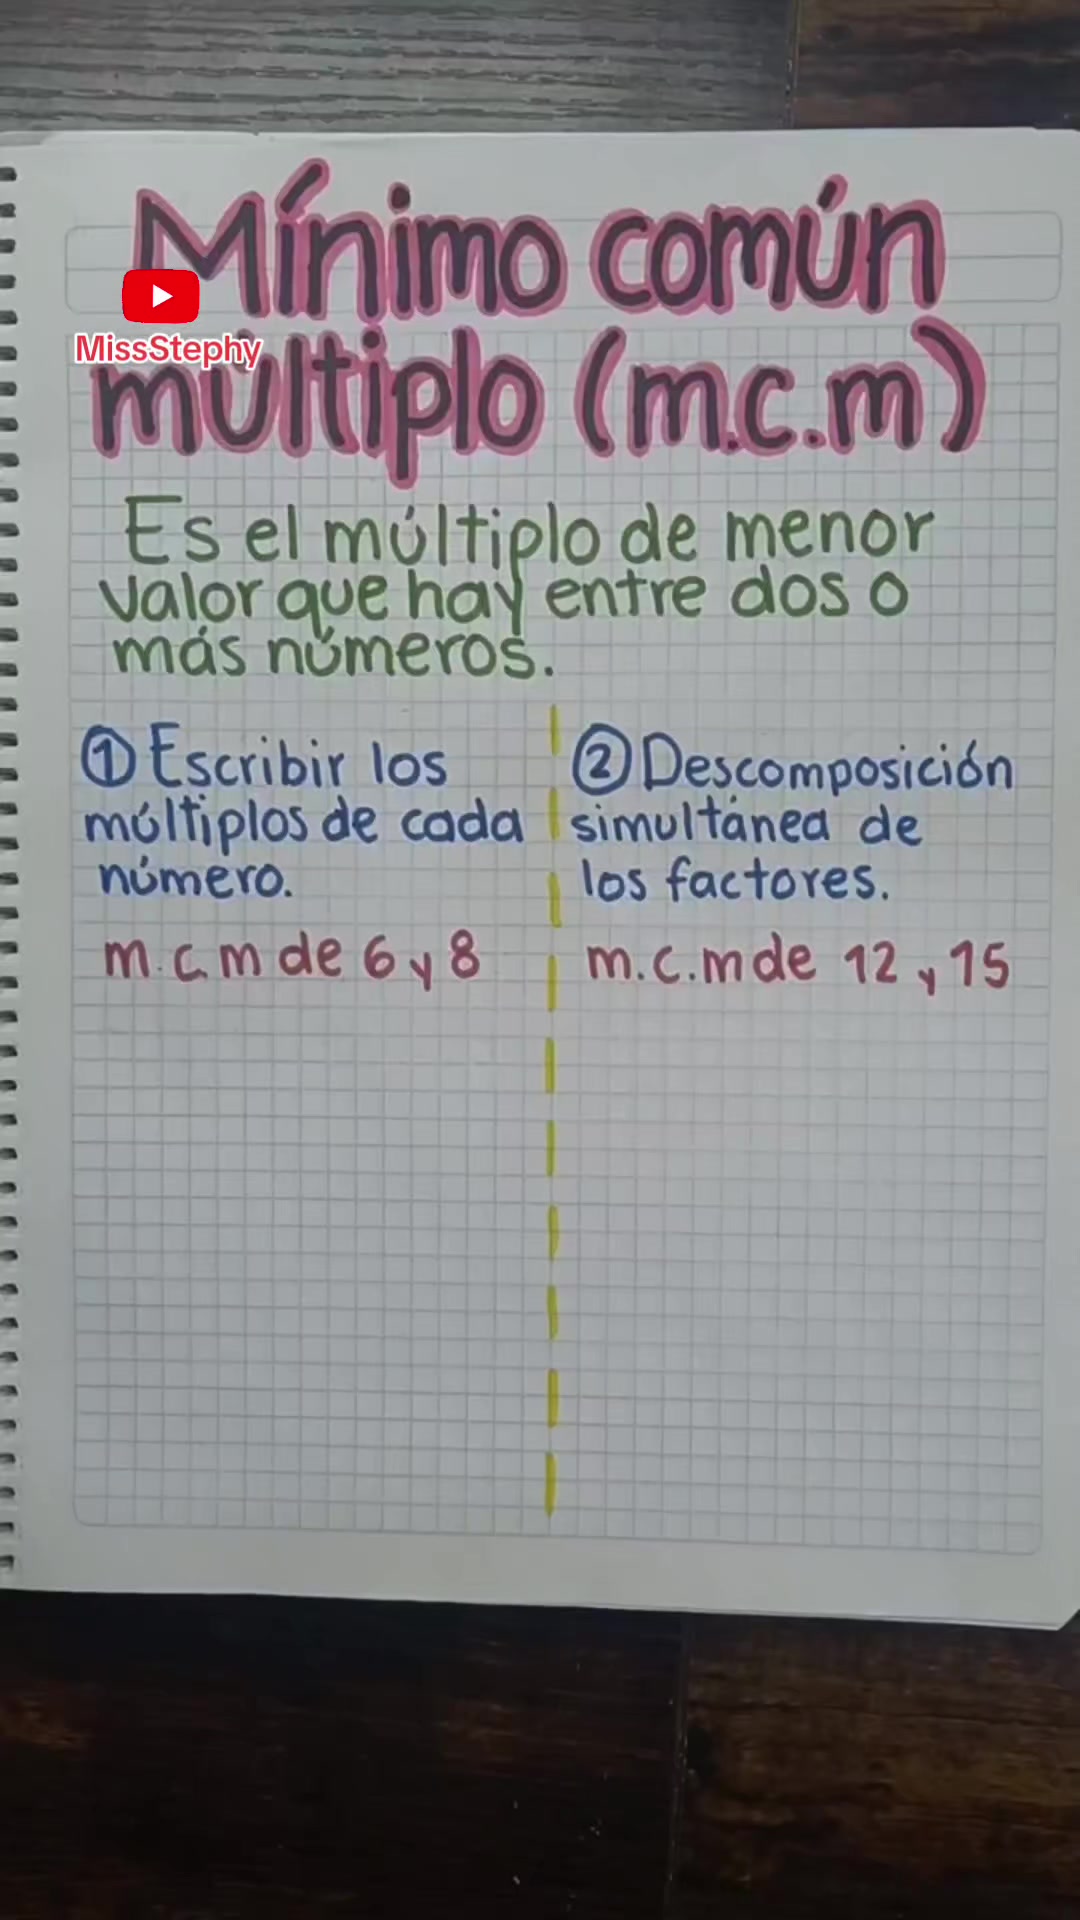 Mínimo común
MissStephy
múltiplo (m.c.m)
Es el múltiplo de menor
valor que hay entre dos o
más números.
① Escribir los
múltiplos de cada
número.
m.c.m de 6 y 8
② Descomposición
simultánea de
los factores.
m.c.m de 12 y 15